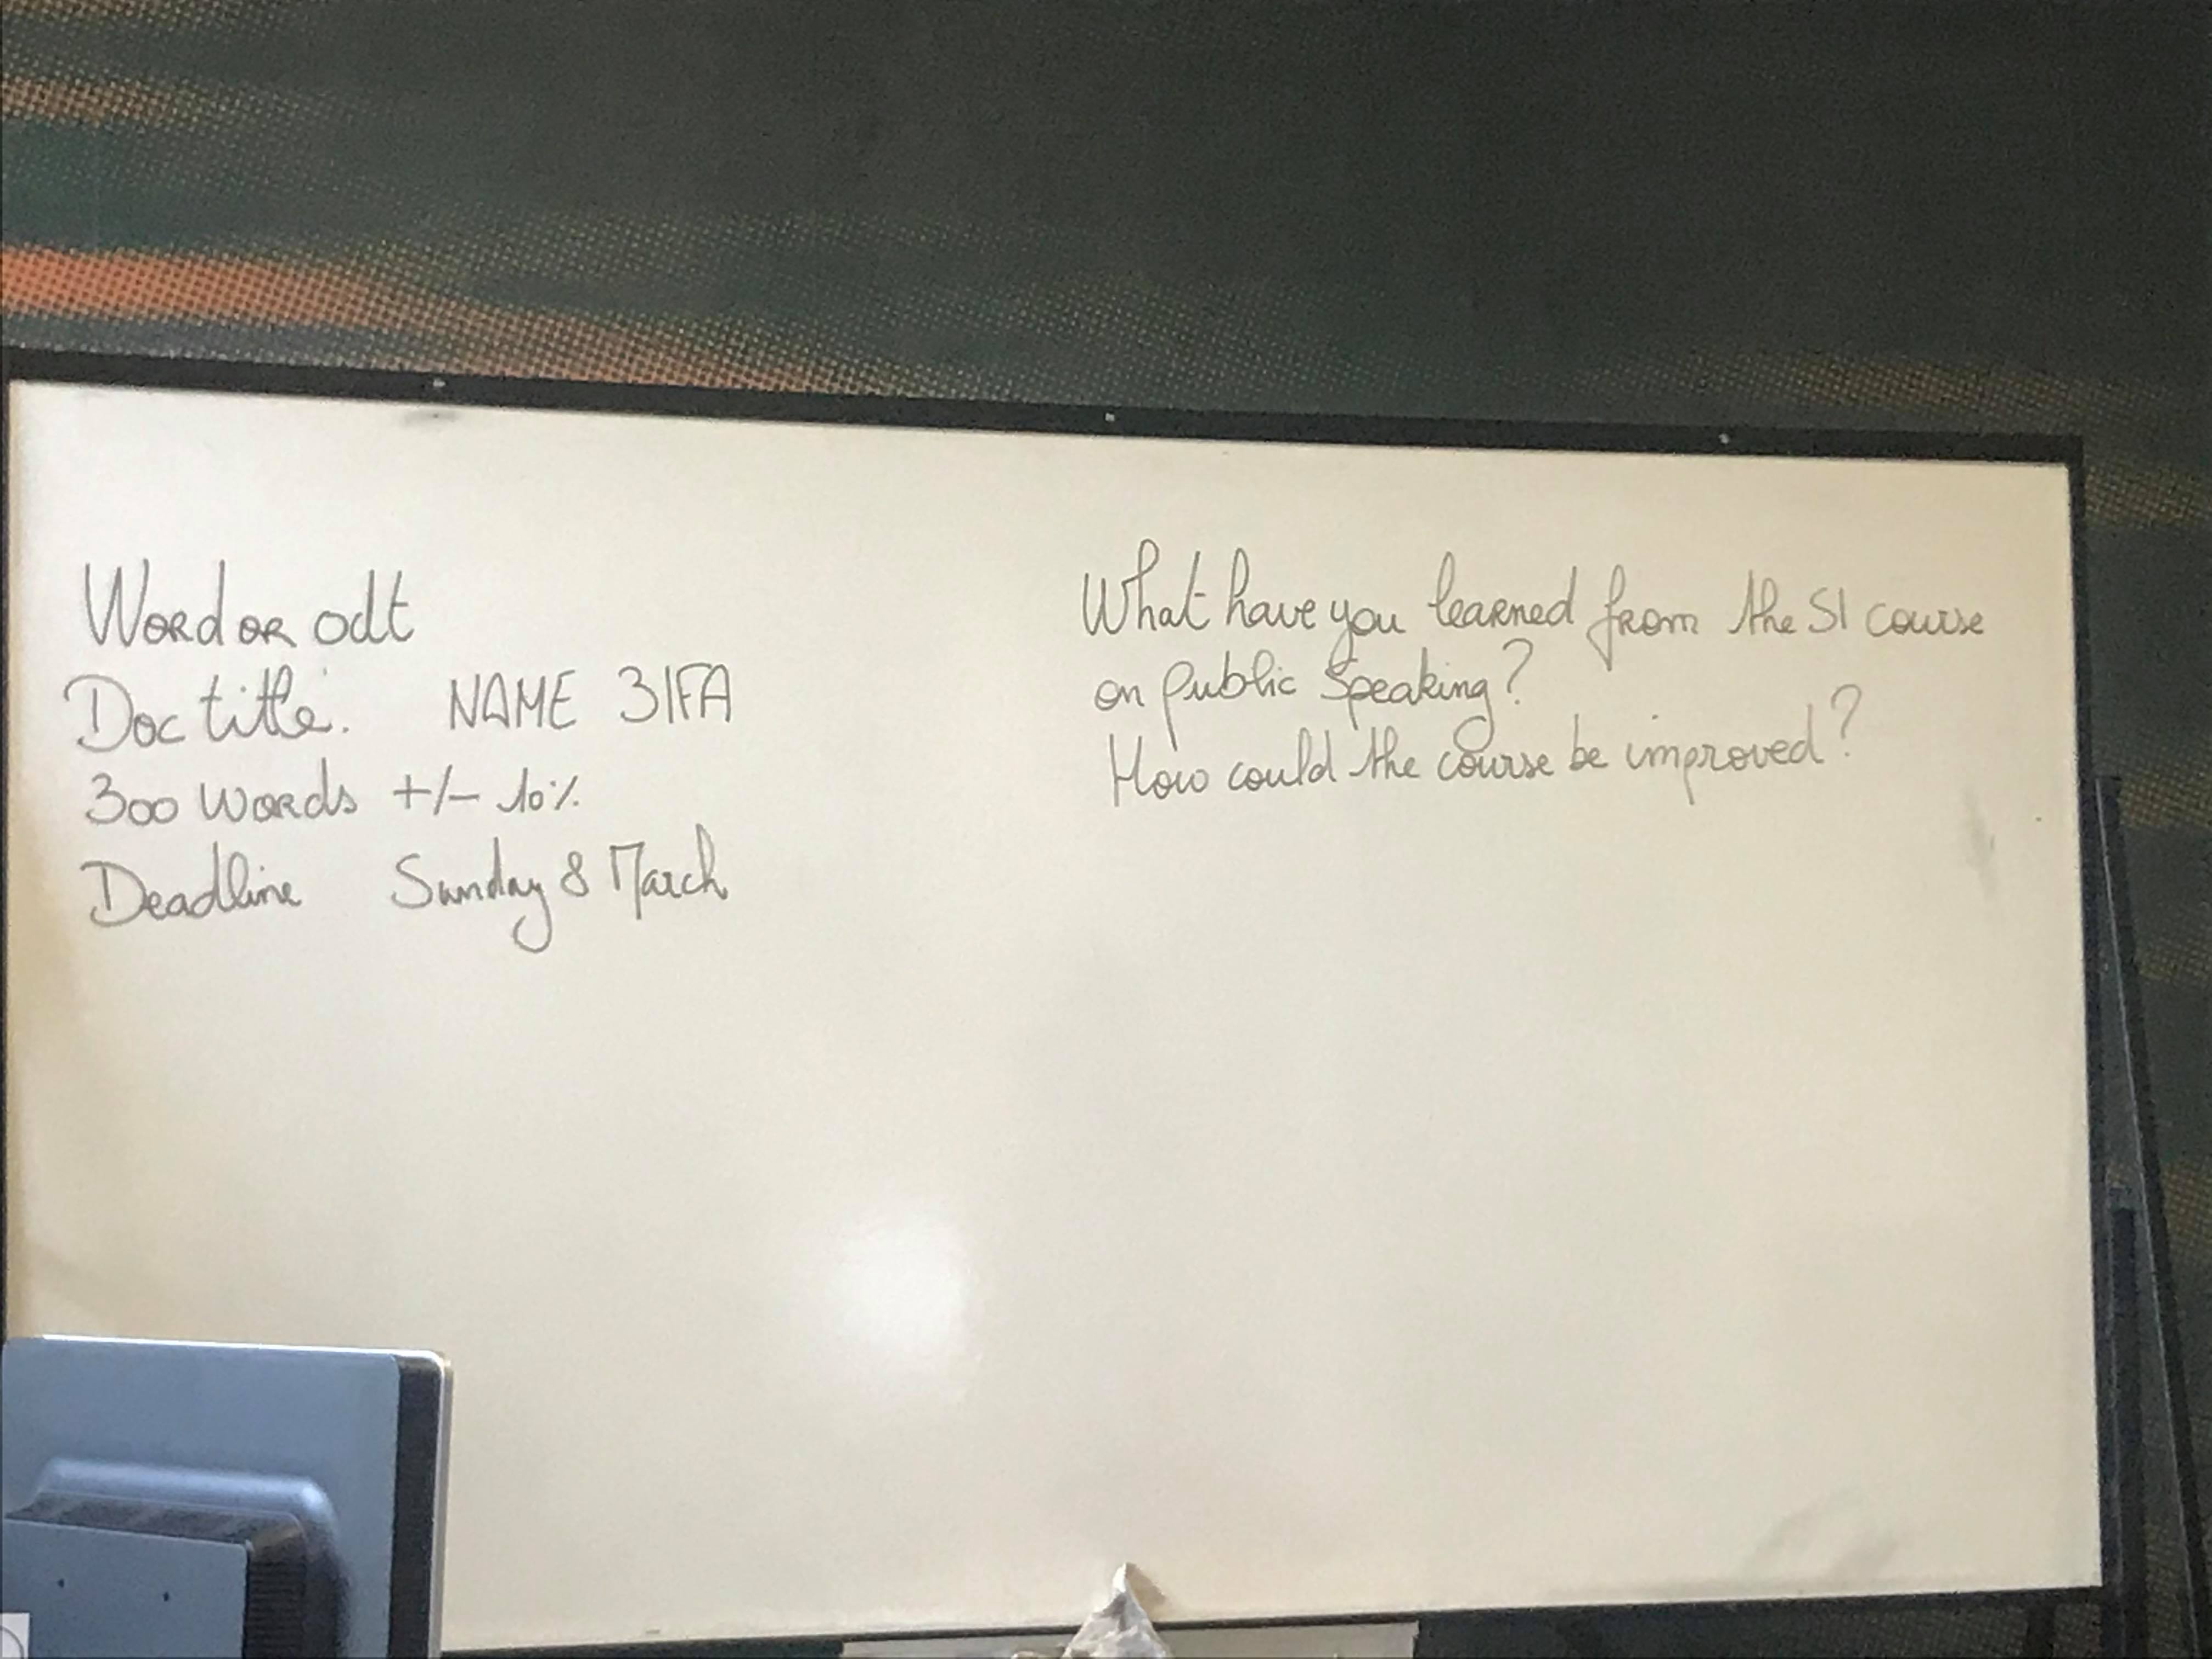 Word or odt
Doc title. NAME 3IFA
300 words +/- 10%
Deadline Sunday 8 March
What have you learned from the S1 course
on public speaking?
How could the course be improved?